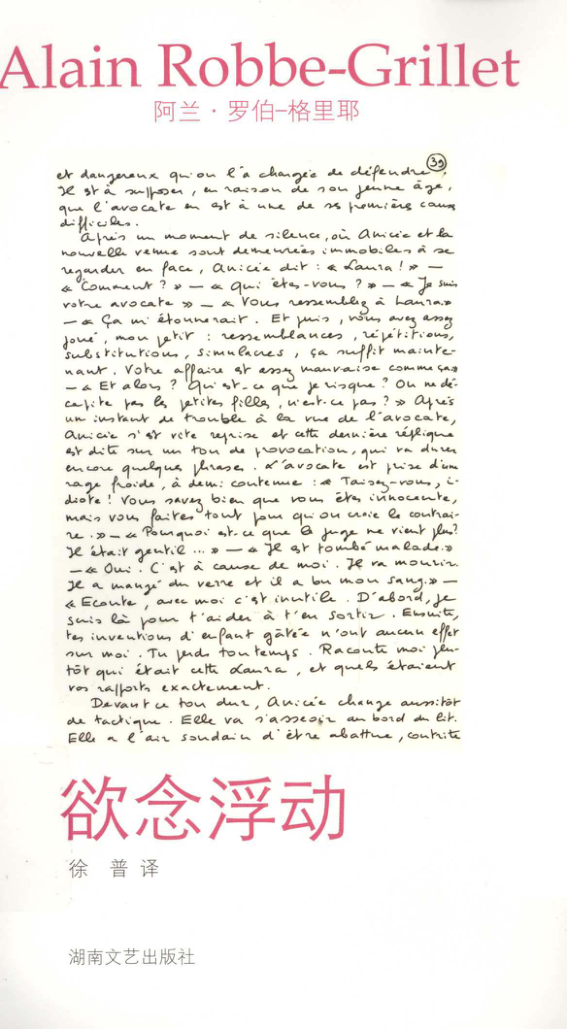 Alain Robbe-Grillet
阿兰·罗伯-格里耶
39
et dangereux qu'on l'a chargée de défendre.
Il est à supposer, en raison de son jeune âge,
que l'avocate en est à une de ses premières causes
difficiles.
Après un moment de silence, où Anicée et la
nouvelle venue sont demeurées immobiles à se
regarder en face, Anicée dit : « Laura ! » —
« Comment ? » — « Qui êtes-vous ? » — « Je suis
votre avocate » — « Vous ressemblez à Laura »
— « Ça m'étonnerait. Et puis, vous avez assez
joué, mon petit : ressemblances, répétitions,
substitutions, simulacres, ça suffit mainte-
nant. Votre affaire est assez mauvaise comme ça »
— « Et alors ? Qu'est-ce que je risque ? On ne dé-
capite pas les petites filles, n'est-ce pas ? » Après
un instant de trouble à la vue de l'avocate,
Anicée s'est vite reprise et cette dernière réplique
est dite sur un ton de provocation, qui va durer
encore quelques phrases. L'avocate est prise d'une
rage froide, à demi contenue : « Taisez-vous, i-
diote ! Vous savez bien que vous êtes innocente,
mais vous faites tout pour qu'on croie le contrai-
re. » — « Pourquoi est-ce que le juge ne vient plus ?
Il était gentil ... » — « Il est tombé malade. »
— « Oui. C'est à cause de moi. Il va mourir.
Il a mangé du verre et il a bu mon sang. » —
« Ecoute, avec moi c'est inutile. D'abord, je
suis là pour t'aider à t'en sortir. Ensuite,
tes inventions d'enfant gâtée n'ont aucun effet
sur moi. Tu perds ton temps. Raconte moi plu-
tôt qui était cette Laura, et quels étaient
vos rapports exactement.
Devant ce ton dur, Anicée change aussitôt
de tactique. Elle va s'asseoir au bord du lit.
Elle a l'air soudain d'être abattue, contrite
欲念浮动
徐 普 译
湖南文艺出版社